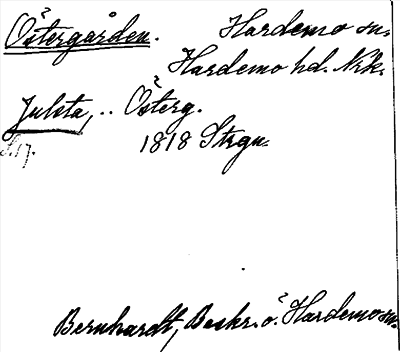 Östergården. Hardemo sn.
Hardemo hd. Nrk.
Julsta, .. Österg.
1818 Strgn.
S. 17.
Bernhardt, Beskr. ö. Hardemo sn.